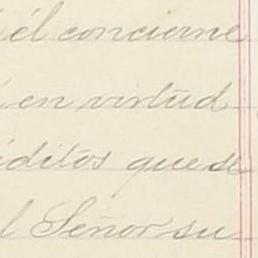 él concierne
en virtud
éditos que se
l Señor su